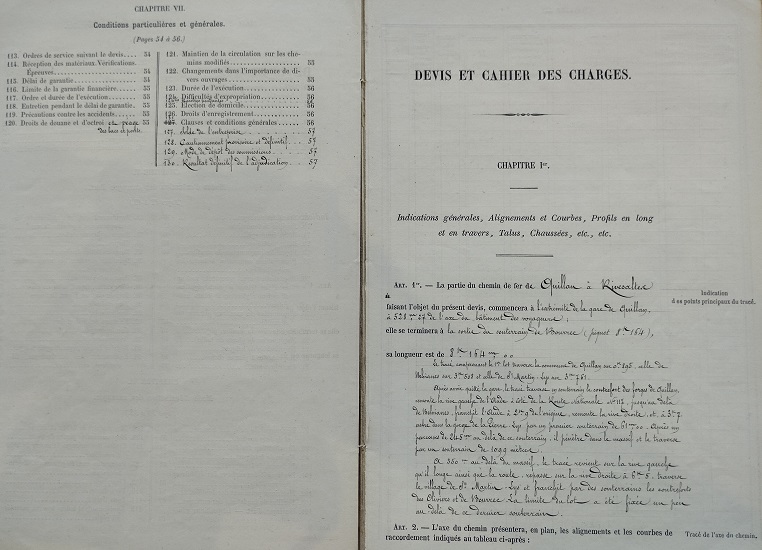 CHAPITRE VII.
Conditions particulières et générales.
(Pages 54 à 56.)
113. Ordres de service suivant le devis.... 54
114. Réception des matériaux. Vérifications.
Épreuves........................ 54
115. Délai de garantie.................... 55
116. Limite de la garantie financière..... 55
117. Ordre et durée de l'exécution....... 55
118. Entretien pendant le délai de garantie. 55
119. Précautions contre les accidents..... 55
120. Droits de douane et d'octroi 55
121. Maintien de la circulation sur les che-
mins modifiés................... 55
122. Changements dans l'importance de di-
vers ouvrages................... 55
123. Durée de l'exécution................ 56
124. Difficultés d'expropriation.......... 56
125. Élection de domicile................ 56
126. Droits d'enregistrement............. 56
Clauses et conditions générales..... 56
127. Solde de l'entreprise 57
128. Cautionnement provisoire et définitif. 57
129. Mode de dépôt des soumissions 57
130. Résultat définitif de l'adjudication. 57
DEVIS ET CAHIER DES CHARGES.
CHAPITRE Ier.
Indications générales, Alignements et Courbes, Profils en long
et en travers, Talus, Chaussées, etc., etc.
ART. 1er. — La partie du chemin de fer de Quillan à Rivesaltes
Indication
des points principaux du tracé.
faisant l'objet du présent devis, commencera à l'extrémité de la gare de Quillan,
à 528m27 de l'axe du bâtiment des voyageurs ;
elle se terminera à la sortie du souterrain de (piquet 8k 164),
sa longueur est de 8k 164m 00
Le tracé comprenant le 1er lot traverse la commune de Quillan sur celle de
Belvianes sur et celle de St Martin-Lys sur
Après avoir quitté la gare, le tracé traverse en souterrain le contrefort des forges de Quillan,
remonte la rive gauche de l'Aude à côté de la Route Nationale No 117, jusqu'au delà
de Belvianes, franchit l'Aude à de l'origine, remonte la rive droite et, à
entre dans la gorge de la Pierre-Lys par un premier souterrain de Après un
parcours de 245m au delà de ce souterrain, il pénètre dans le massif et le traverse
par un souterrain de mètres.
A au delà du massif, le tracé revient sur la rive gauche
qu'il longe ainsi que la route, repasse sur la rive droite à traverse
le village de St Martin-Lys et franchit par des souterrains les contreforts
des Oliviers et de La limite du lot a été fixée un peu
au delà de ce dernier souterrain.
ART. 2. — L'axe du chemin présentera, en plan, les alignements et les courbes de
raccordement indiqués au tableau ci-après :
Tracé de l'axe du chemin.